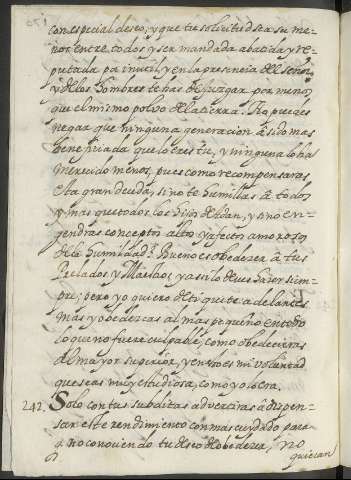 con especial deseo, y que tu solicitud sea su me=
nor entre todos y ser mandada abatida y re=
putada pa inutil, y en la presencia del señor
y de los hombres te has de juzgar por menos
que el mismo polvo de la tierra. No puedes
negar que ninguna generacion à sido mas
beneficiada que lo eres tu, y ninguna lo ha
merecido menos, pues como recompensaras
esta gran deuda, si no te humillas à todos
y mas que todos los hijos de Adan, y si no en=
gendras conceptos altos y afectos amorosos
de la humildad? Bueno es obedecer à tus
Prelados y Maestros, y assi lo debes hazer siem=
pre; pero yo quiero de ti que te adelantes
mas y obedezcas al mas pequeño en todo
lo que no fuere culpable, como obedecieras
al mayor superior, y en esto es mi voluntad
que seas muy estudiosa, como yo lo era.
242, Solo con tus subditas advertiras à dispen=
sar este rendimiento con mas cuydado para
q no conociendo tu deseo de obedezer, no
quieran